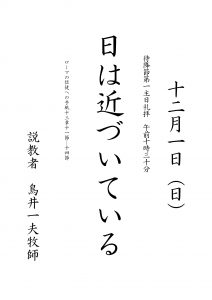 十二月一日（日）
待降節第一主日礼拝　午前十時三十分
日は近づいている
ローマの信徒への手紙十三章十一節-十四節
説教者　鳥井一夫牧師